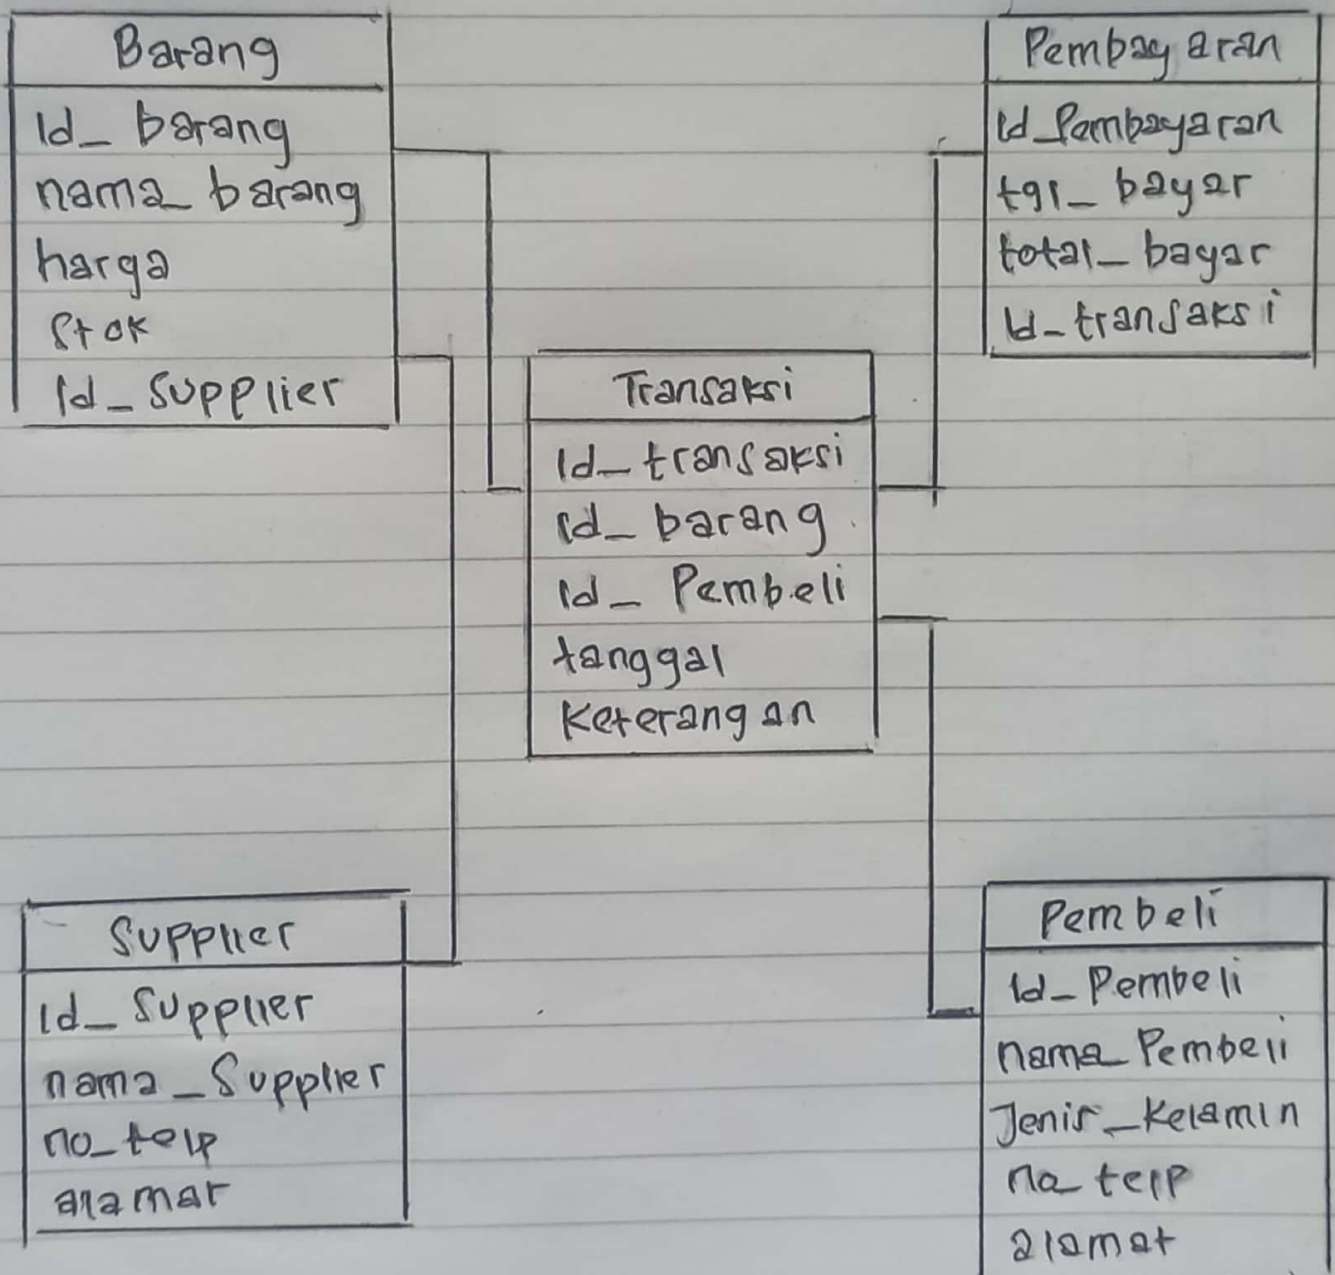 Barang
id_barang
nama_barang
harga
Stok
id_supplier
Pembayaran
id_Pembayaran
tgl_bayar
total_bayar
id_transaksi
Transaksi
id_transaksi
id_barang
id_Pembeli
tanggal
Keterangan
Supplier
id_Supplier
nama_Supplier
no_telp
alamat
Pembeli
id_Pembeli
nama_Pembeli
Jenis_Kelamin
no_telp
alamat